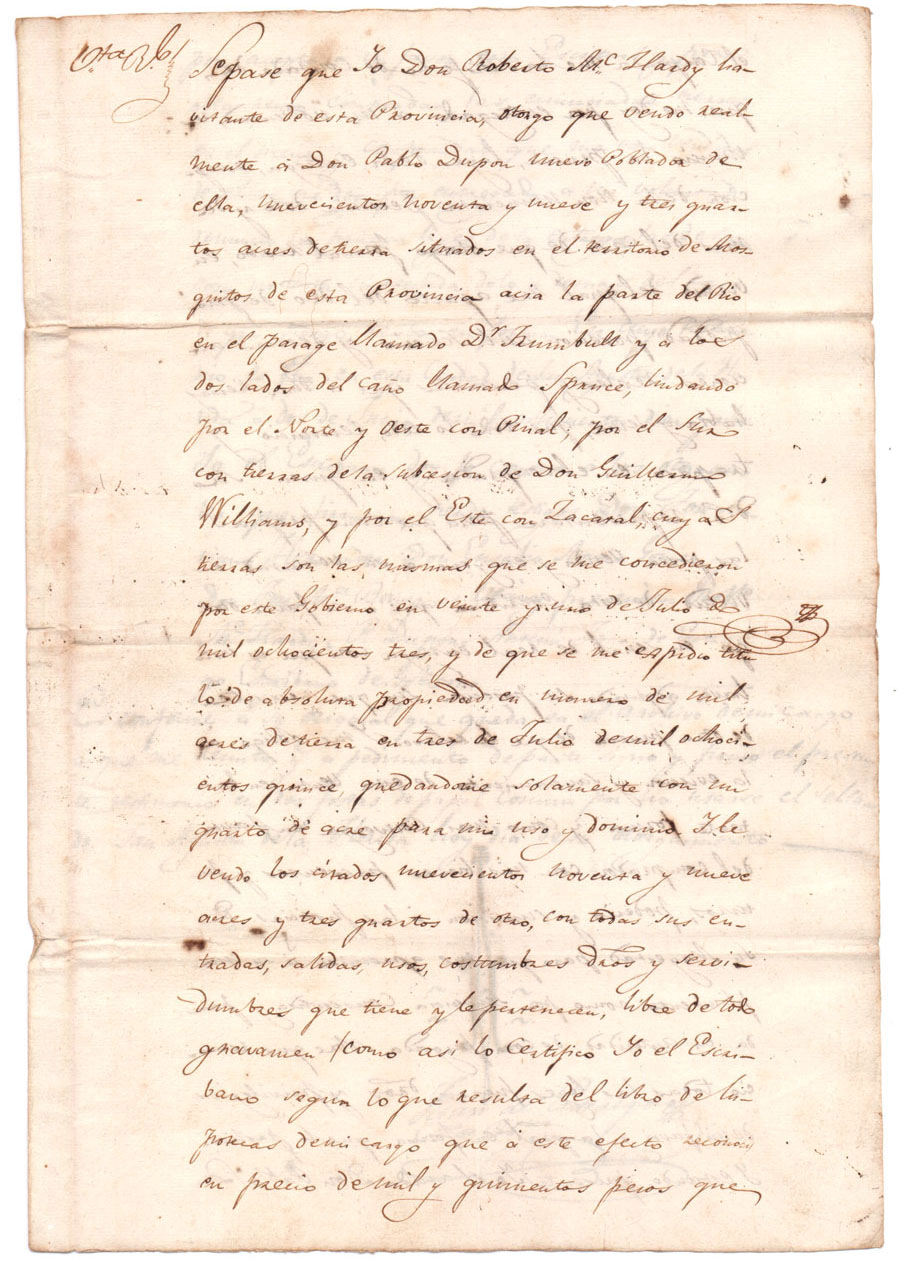 Sepase que Yo Don Roberto Mc Hardy ha-
vitante de esta Provincia, otorgo que vendo real-
mente á Don Pablo Dupon nuevo Poblador de
ella, nuevecientos noventa y nueve y tres quar-
tos acres de tierra situados en el territorio de Mos-
quitos de esta Provincia acia la parte del Rio
en el parage llamado Dr Turnbull y á los
dos lados del caño llamado Spruce, lindando
por el Norte y Oeste con Pinal, por el Sur
con tierras de la subcesion de Don Guillermo
Williams, y por el Este con Zacatal, cuyas
tierras son las mismas que se me concedieron
por este Gobierno en veinte y uno de Julio de
mil ochocientos tres, y de que se me espidio titu-
lo de absoluta propiedad, en numero de mil
acres de tierra en tres de Julio de mil ochoci-
entos quince, quedandome solamente con un
quarto de acre para mi uso y dominio Y le
vendo los citados nuevecientos noventa y nueve
acres y tres quartos de otro, con todas sus en-
tradas, salidas, usos, costumbres dros y servi-
dumbres que tiene y le pertenecen, libre de todo
gravamen /como asi lo Certifico Yo el Escri-
bano segun lo que resulta del libro de hi-
potecas de mi cargo que á este efecto reconoci
en precio de mil y quinientos pesos que